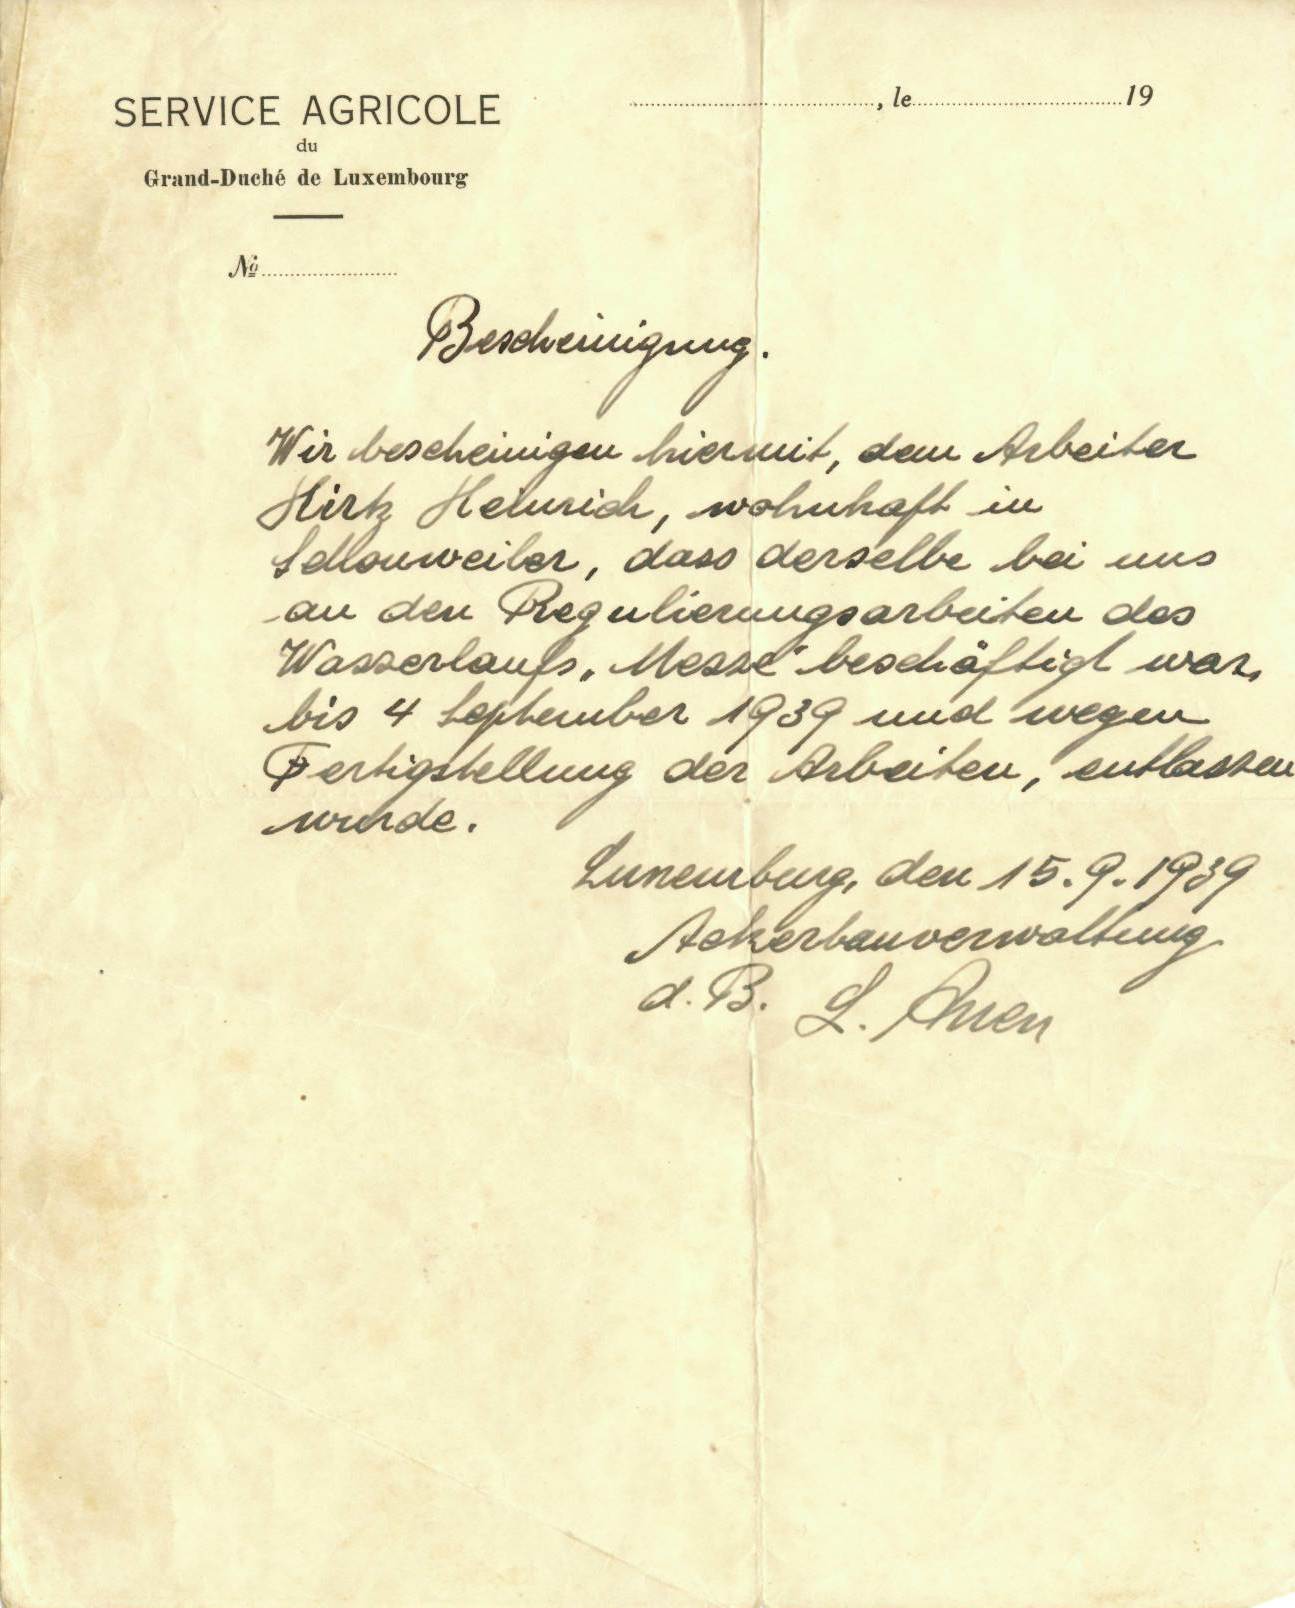 SERVICE AGRICOLE
du
Grand-Duché de Luxembourg
, le 19
No
Bescheinigung.
Wir bescheinigen hiermit, dem Arbeiter
Hirtz Heinrich, wohnhaft in
Schouweiler, dass derselbe bei uns
an den Regulierungsarbeiten des
Wasserlaufs „Messe" beschäftigt war,
bis 4 September 1939 und wegen
Fertigstellung der Arbeiten, entlassen
wurde.
Luxemburg, den 15.9.1939
Ackerbauverwaltung
d. B. L.